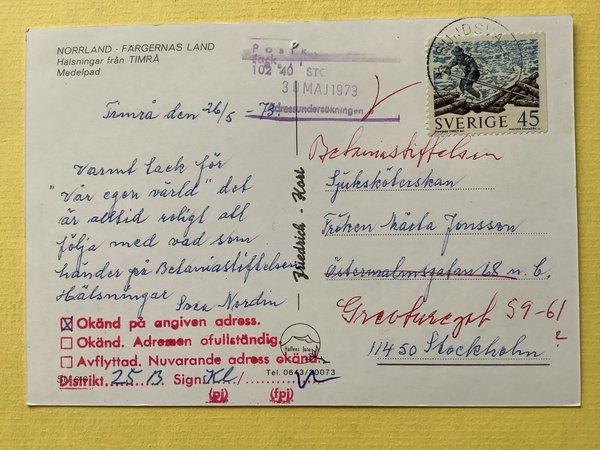 NORRLAND - FÄRGERNAS LAND
Hälsningar från TIMRÅ
Medelpad
Timrå den 26/5 - 73.
Varmt tack för
"Vår egen värld" det
är alltid roligt att
följa med vad som
händer på Betaniastiftelsen
Hälsningar Svea Nordin
Okänd på angiven adress.
Okänd. Adressen ofullständig.
Avflyttad. Nuvarande adress okänd.
Distrikt 25 B Sign Kl /
(pi) (fpj)
Friedrich - Kort
Hallens foto
Tel. 0643/30073
102 40 STO
30 MAJ 1973
Adressundersökningen
SUNDSVALL
SVERIGE 45
Betaniastiftelsen
Sjuksköterskan
Fröken Märta Jonsson
Östermalmsgatan 68 n. b.
Grevturegat 59-61
?
11450 Stockholm